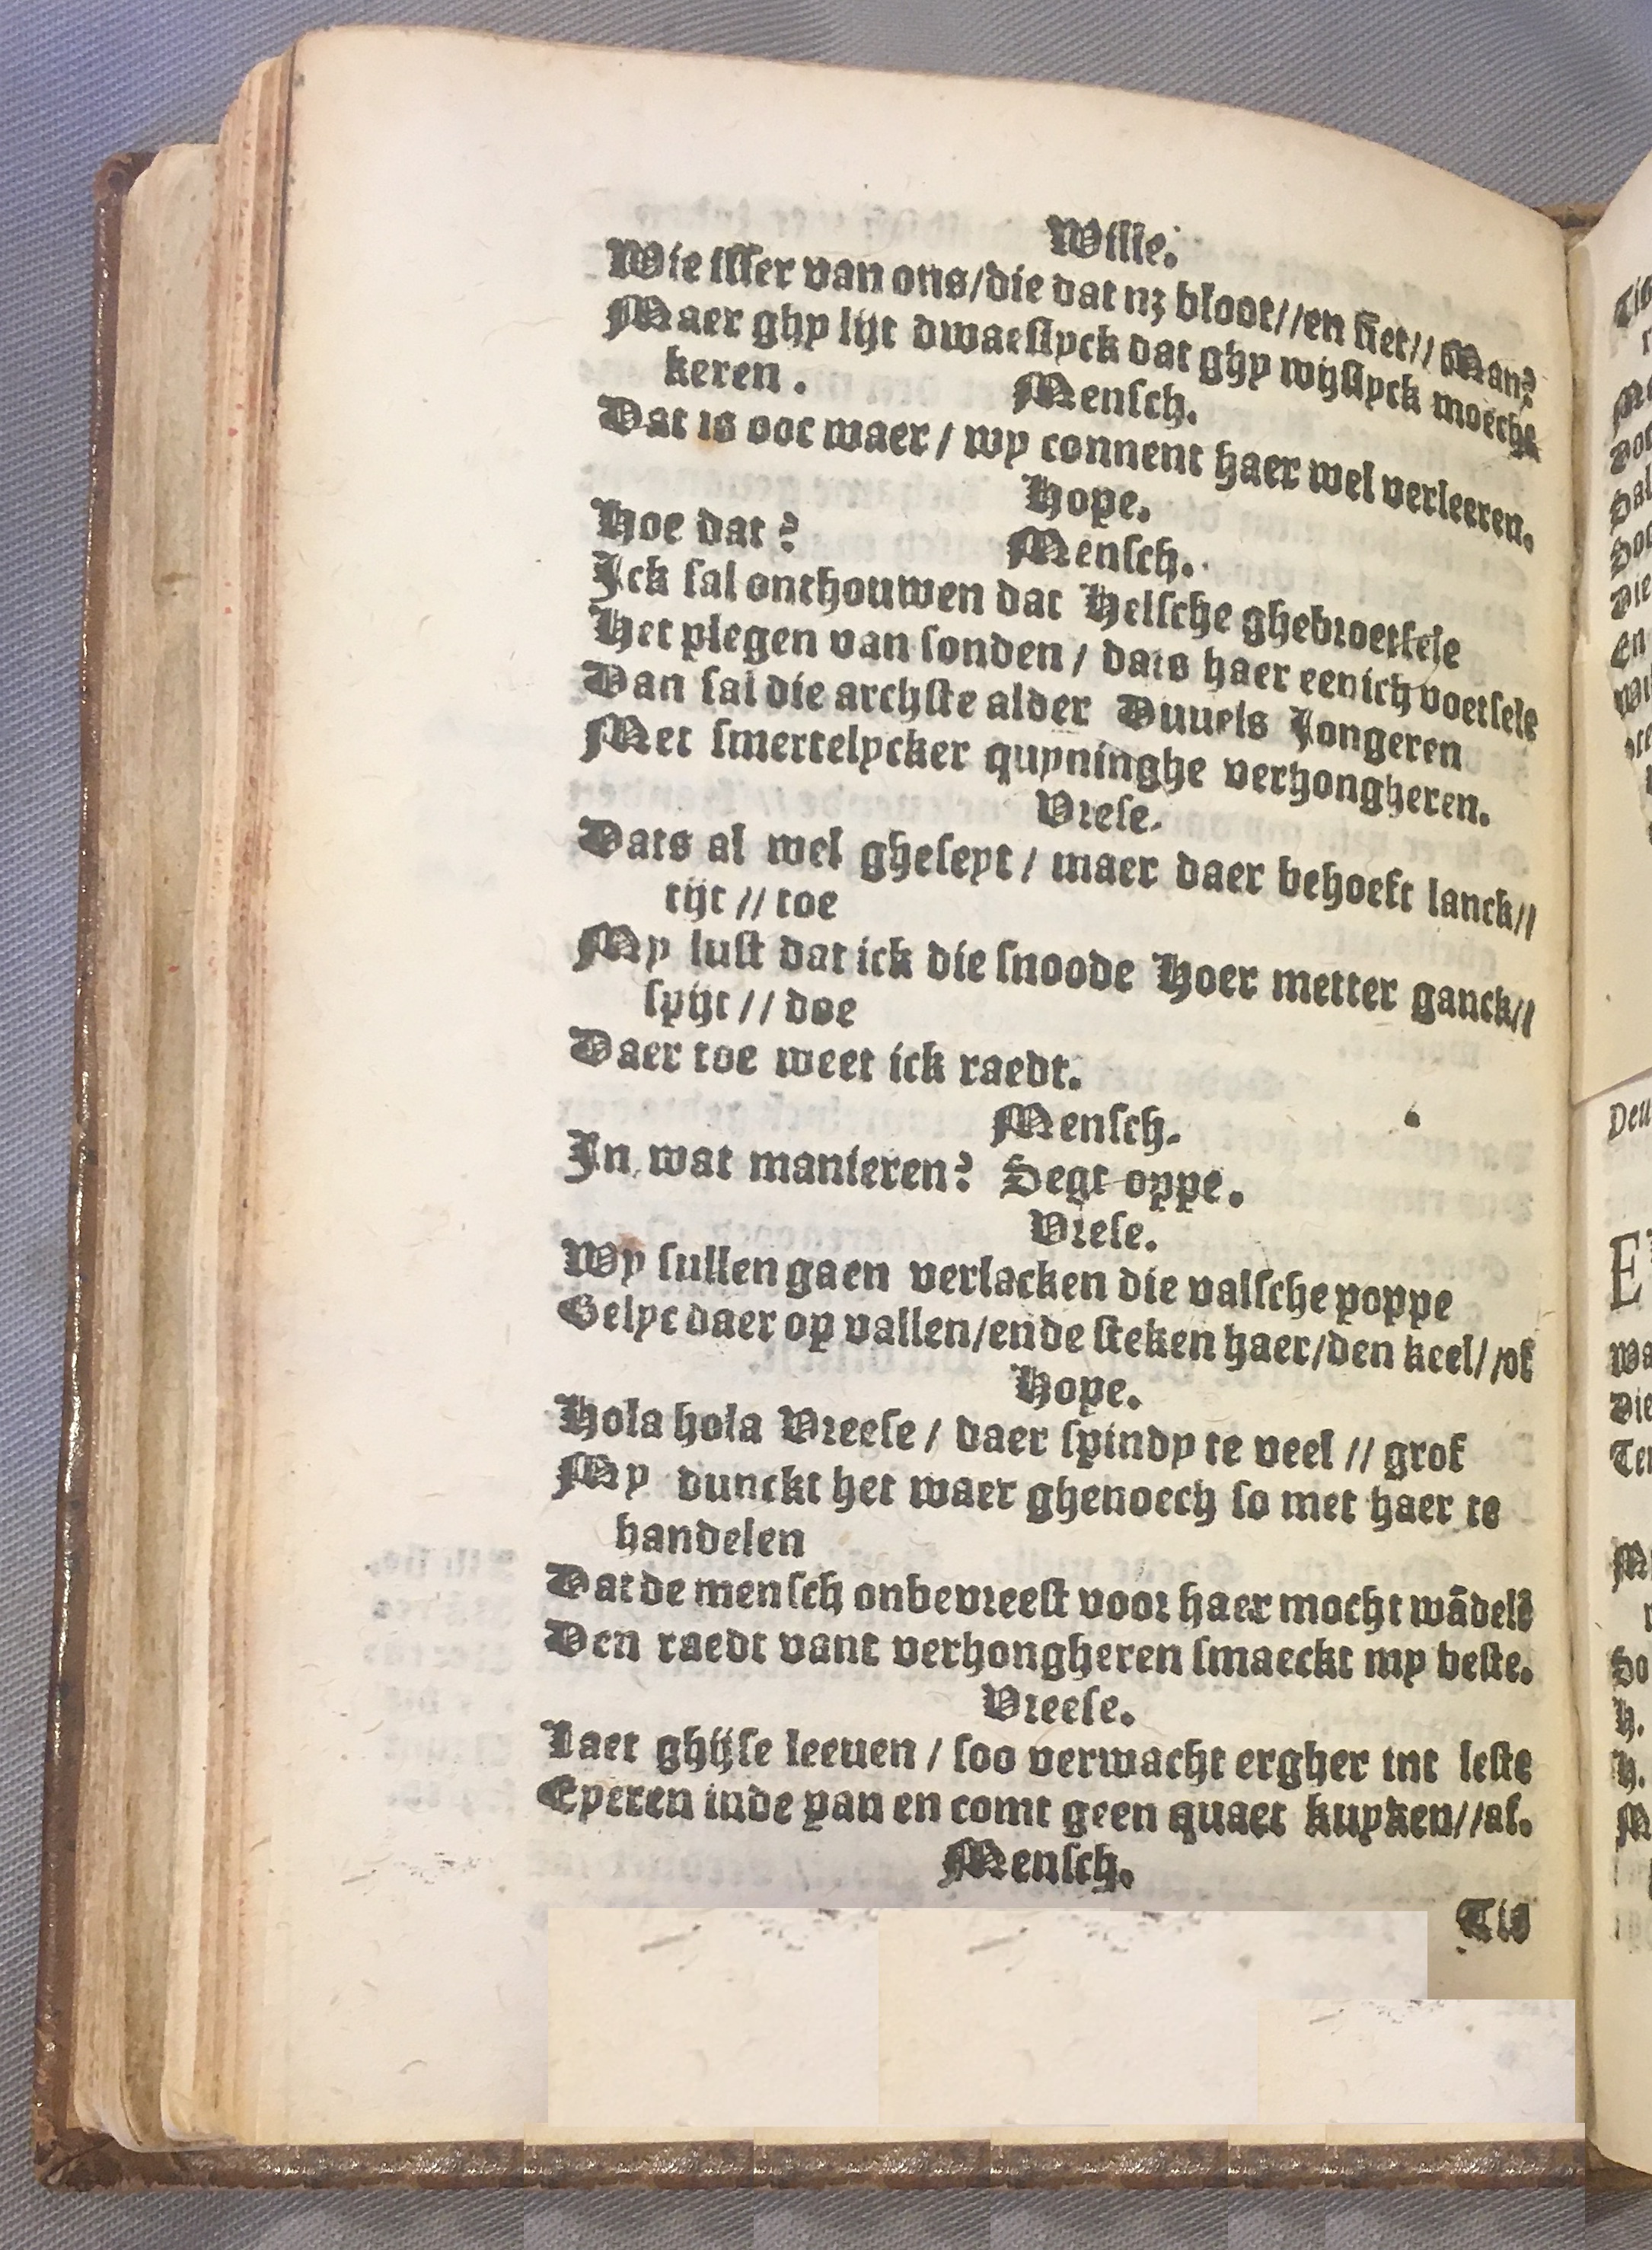 Wille.
Wie isser van ons/die dat nz bloot//en siet// Man?
Maer ghy lijt dwaeslyck dat ghy wijslyck moecht
keren. Mensch.
Dat is ooc waer / wy connent haer wel verleeren.
Hope.
Hoe dat? Mensch.
Ick sal onthouwen dat Helsche ghebroetsele
Het plegen van sonden / dats haer eenich voetsele
Dan sal die archste alder Duuels Jongeren
Met smertelycker quyninghe verhongheren.
Vrese.
Dats al wel gheseyt / maer daer behoeft lanck//
tijt // toe
My lust dat ick die snoode Hoer metter ganck//
spijt // doe
Daer toe weet ick raedt.
Mensch.
In wat manieren? Segt oppe.
Vrese.
Wy sullen gaen verlacken die valsche poppe
Gelyc daer op vallen/ende steken haer/den keel//of
Hope.
Hola hola Vreese / daer spindy te veel // grof
My dunckt het waer ghenoech so met haer te
handelen
Dat de mensch onbevreest voor haer mocht wādelē
Den raedt vant verhongheren smaeckt my beste.
Vreese.
Laet ghijse leeuen / soo verwacht ergher int leste
Eyeren inde pan en comt geen quaet kuyken//af.
Mensch.
Tis